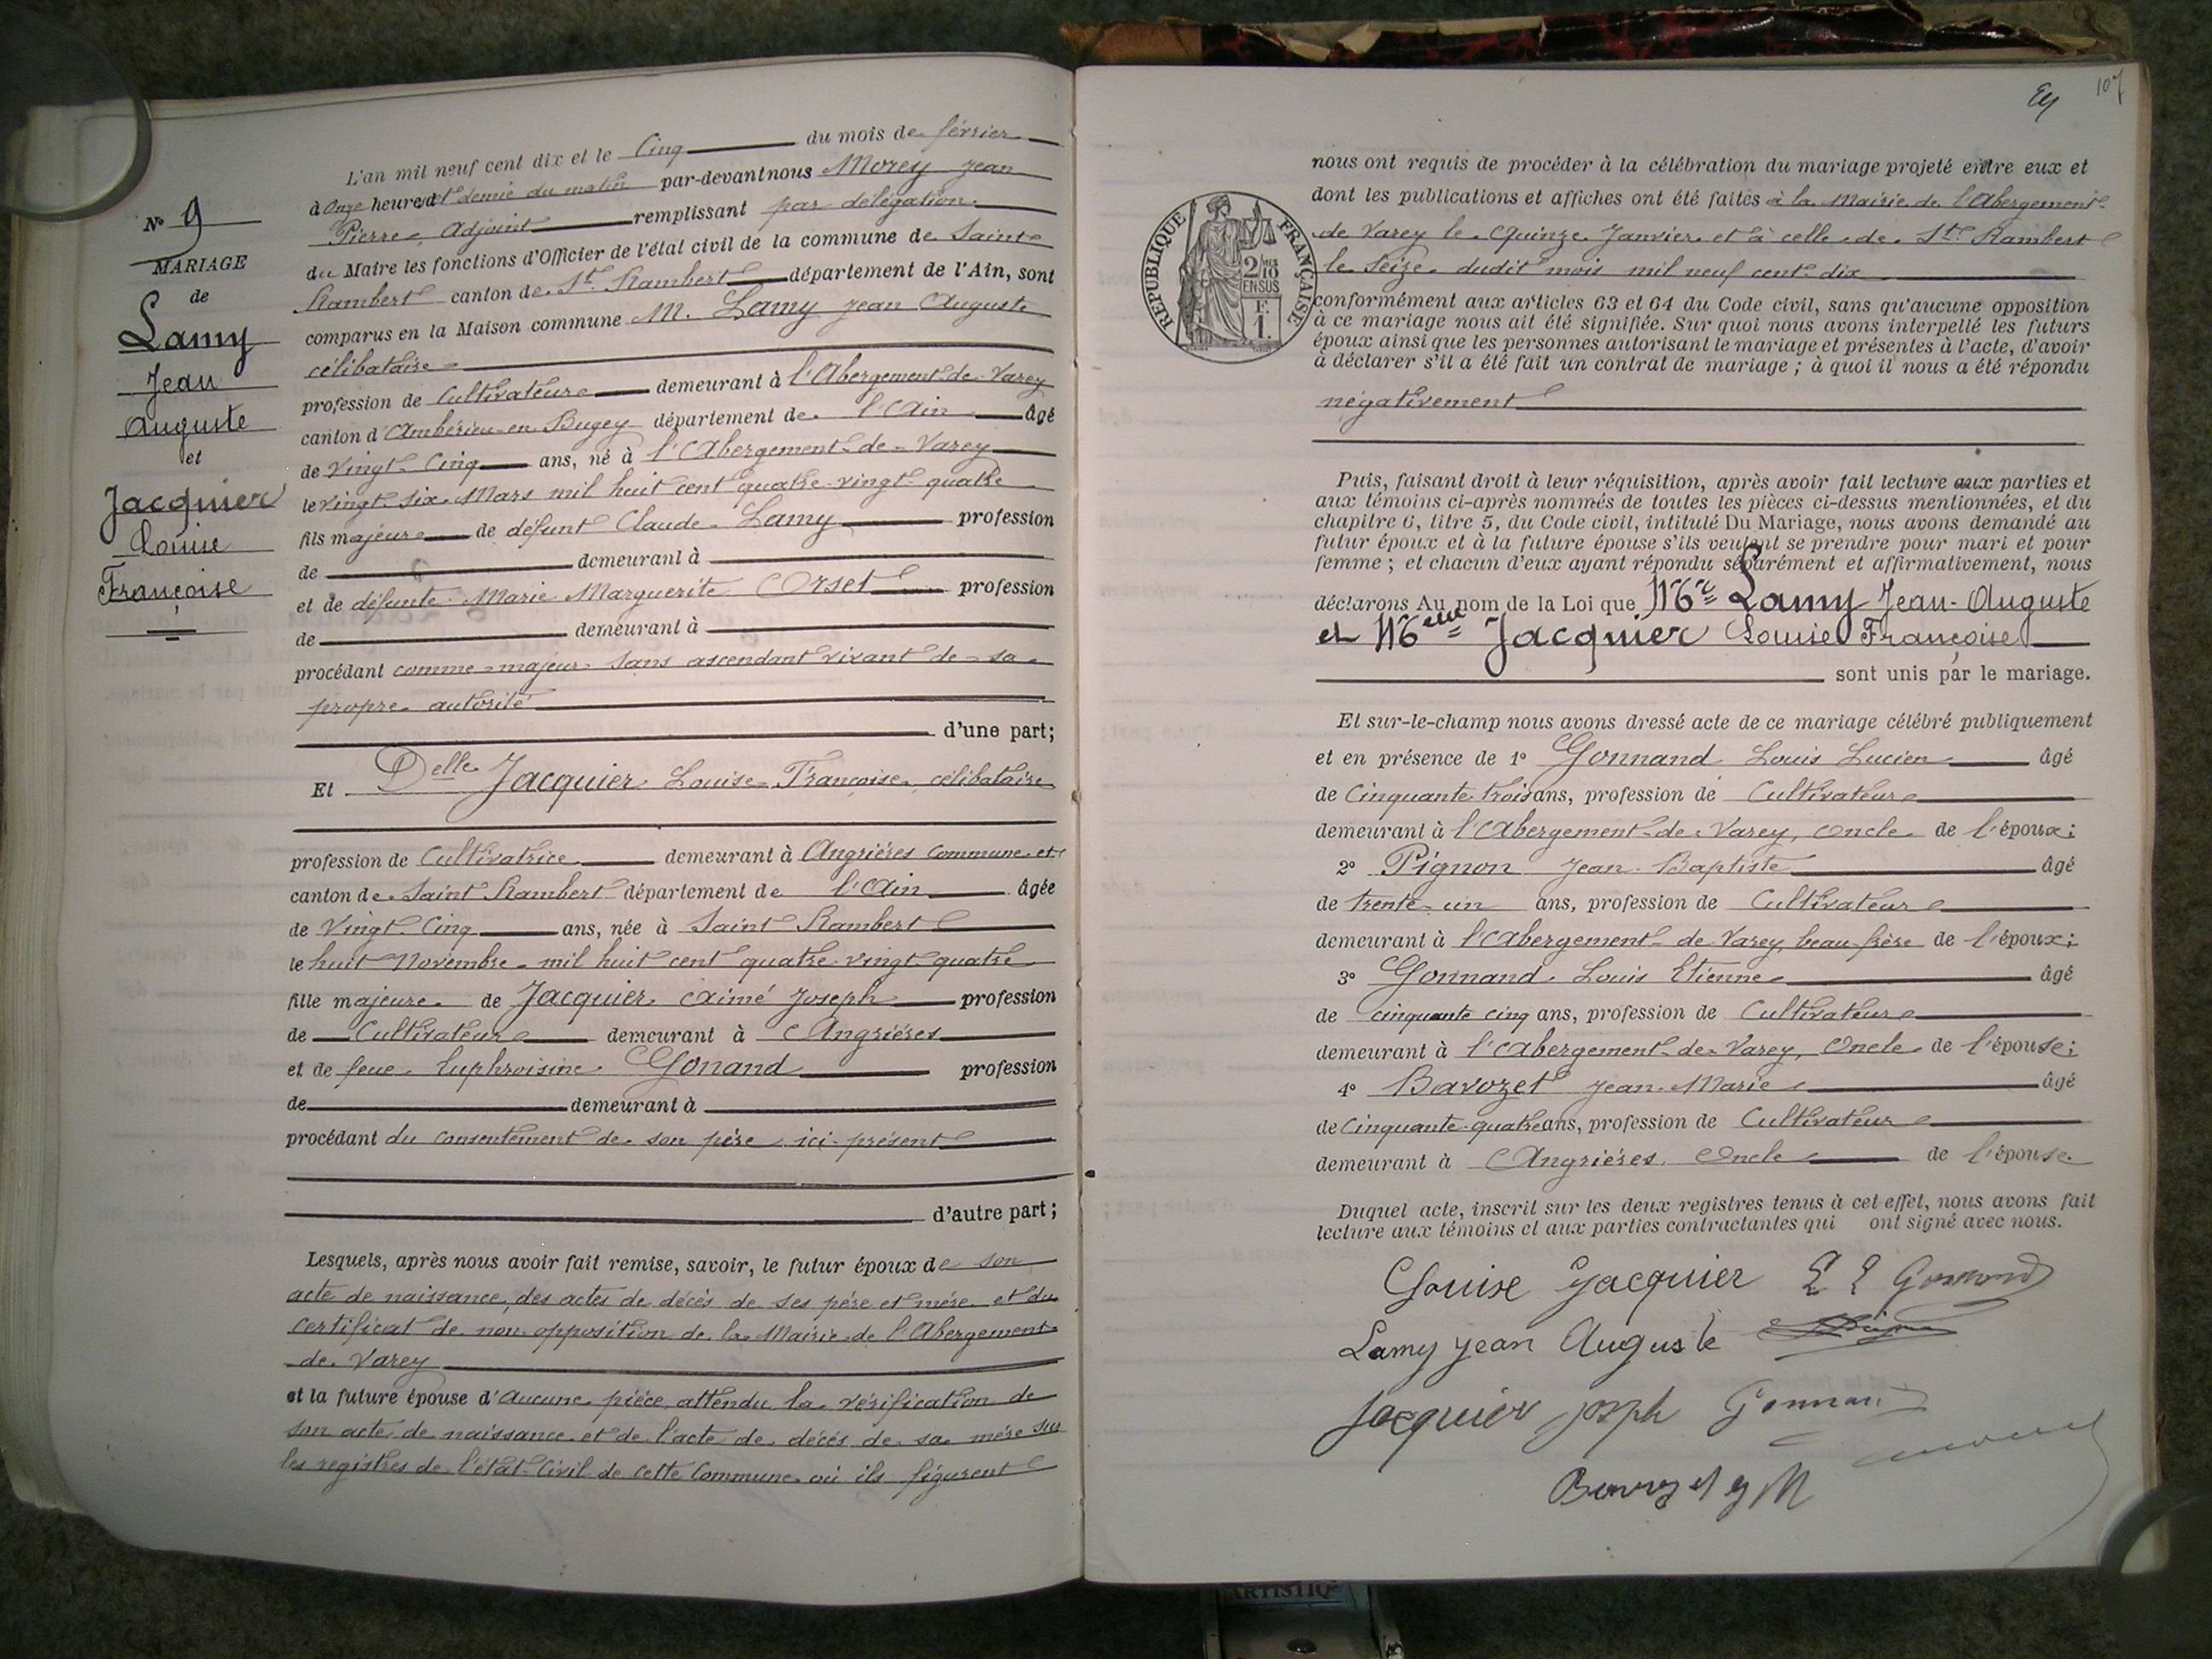 N° 9
MARIAGE
de
Lamy
Jean
Auguste
et
Jacquier
Louise
Françoise
L'an mil neuf cent dix et le Cinq du mois de février
à Onze heures et demie du matin par-devant nous Morey Jean
Pierre, Adjoint remplissant par délégation
du Maire les fonctions d'Officier de l'état civil de la commune de Saint
Rambert canton de St. Rambert département de l'Ain, sont
comparus en la Maison commune M. Lamy Jean Auguste
célibataire
profession de Cultivateur demeurant à l'Abergement-de-Varey
canton d'Ambérieu-en-Bugey département de l'Ain âgé
de Vingt-Cinq ans, né à l'Abergement-de-Varey
le vingt-six Mars mil huit cent quatre-vingt-quatre
fils majeur de défunt Claude Lamy profession
de demeurant à
et de défunte Marie Marguerite Orset profession
de demeurant à
procédant comme majeur sans ascendant vivant de sa
propre autorité
d'une part;
Et Delle Jacquier Louise Françoise, célibataire
profession de Cultivatrice demeurant à Angrières commune et
canton de Saint Rambert département de l'Ain âgée
de Vingt-Cinq ans, née à Saint Rambert
le huit Novembre mil huit cent quatre-vingt-quatre
fille majeure de Jacquier Aimé Joseph profession
de Cultivateur demeurant à Angrières
et de feue Euphroisine Gonand profession
de demeurant à
procédant du consentement de son père ici présent
d'autre part;
Lesquels, après nous avoir fait remise, savoir, le futur époux de son
acte de naissance, des actes de décès de ses père et mère et du
certificat de non opposition de la Mairie de l'Abergement
de Varey
et la future épouse d'aucune pièce, attendu la vérification de
son acte de naissance et de l'acte de décès de sa mère sur
les registres de l'état-Civil de cette Commune où ils figurent
107
RÉPUBLIQUE FRANÇAISE
2/10
EN SUS
F.
1.
nous ont requis de procéder à la célébration du mariage projeté entre eux et
dont les publications et affiches ont été faites à la Mairie de l'Abergement
de Varey le Quinze Janvier et à celle de St. Rambert
le Seize dudit mois mil neuf cent dix
conformément aux articles 63 et 64 du Code civil, sans qu'aucune opposition
à ce mariage nous ait été signifiée. Sur quoi nous avons interpellé les futurs
époux ainsi que les personnes autorisant le mariage et présentes à l'acte, d'avoir
à déclarer s'il a été fait un contrat de mariage; à quoi il nous a été répondu
négativement
Puis, faisant droit à leur réquisition, après avoir fait lecture aux parties et
aux témoins ci-après nommés de toutes les pièces ci-dessus mentionnées, et du
chapitre 6, titre 5, du Code civil, intitulé Du Mariage, nous avons demandé au
futur époux et à la future épouse s'ils veulent se prendre pour mari et pour
femme; et chacun d'eux ayant répondu séparément et affirmativement, nous
déclarons Au nom de la Loi que Mr Lamy Jean-Auguste
et Melle Jacquier Louise Françoise
sont unis par le mariage.
Et sur-le-champ nous avons dressé acte de ce mariage célébré publiquement
et en présence de 1° Gonnand Louis Lucien âgé
de Cinquante-trois ans, profession de Cultivateur
demeurant à l'Abergement-de-Varey, Oncle de l'époux;
2° Pignon Jean-Baptiste âgé
de trente-un ans, profession de Cultivateur
demeurant à l'Abergement-de-Varey, beau-frère de l'époux;
3° Gonnand Louis Etienne âgé
de cinquante cinq ans, profession de Cultivateur
demeurant à l'Abergement-de-Varey, Oncle de l'épouse;
4° Bavozet Jean-Marie âgé
de Cinquante-quatre ans, profession de Cultivateur
demeurant à Angrières, Oncle de l'épouse
Duquel acte, inscrit sur les deux registres tenus à cet effet, nous avons fait
lecture aux témoins et aux parties contractantes qui ont signé avec nous.
Louise Jacquier L E Gonnand
Lamy Jean Auguste
Jacquier Joseph Gonnand
Bavozet J M
ARTISTIQ